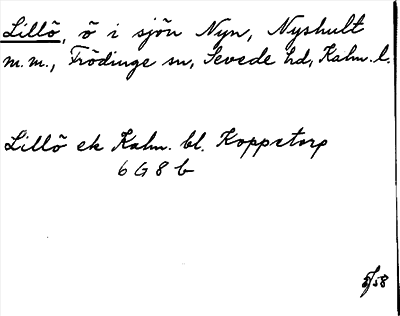 Lillö, ö i sjön Nyn, Nyshult
m.m., Frödinge sn, Sevede hd, Kalm. l.
Lillö ek Kalm. bl. Koppetorp
6 G 8 b